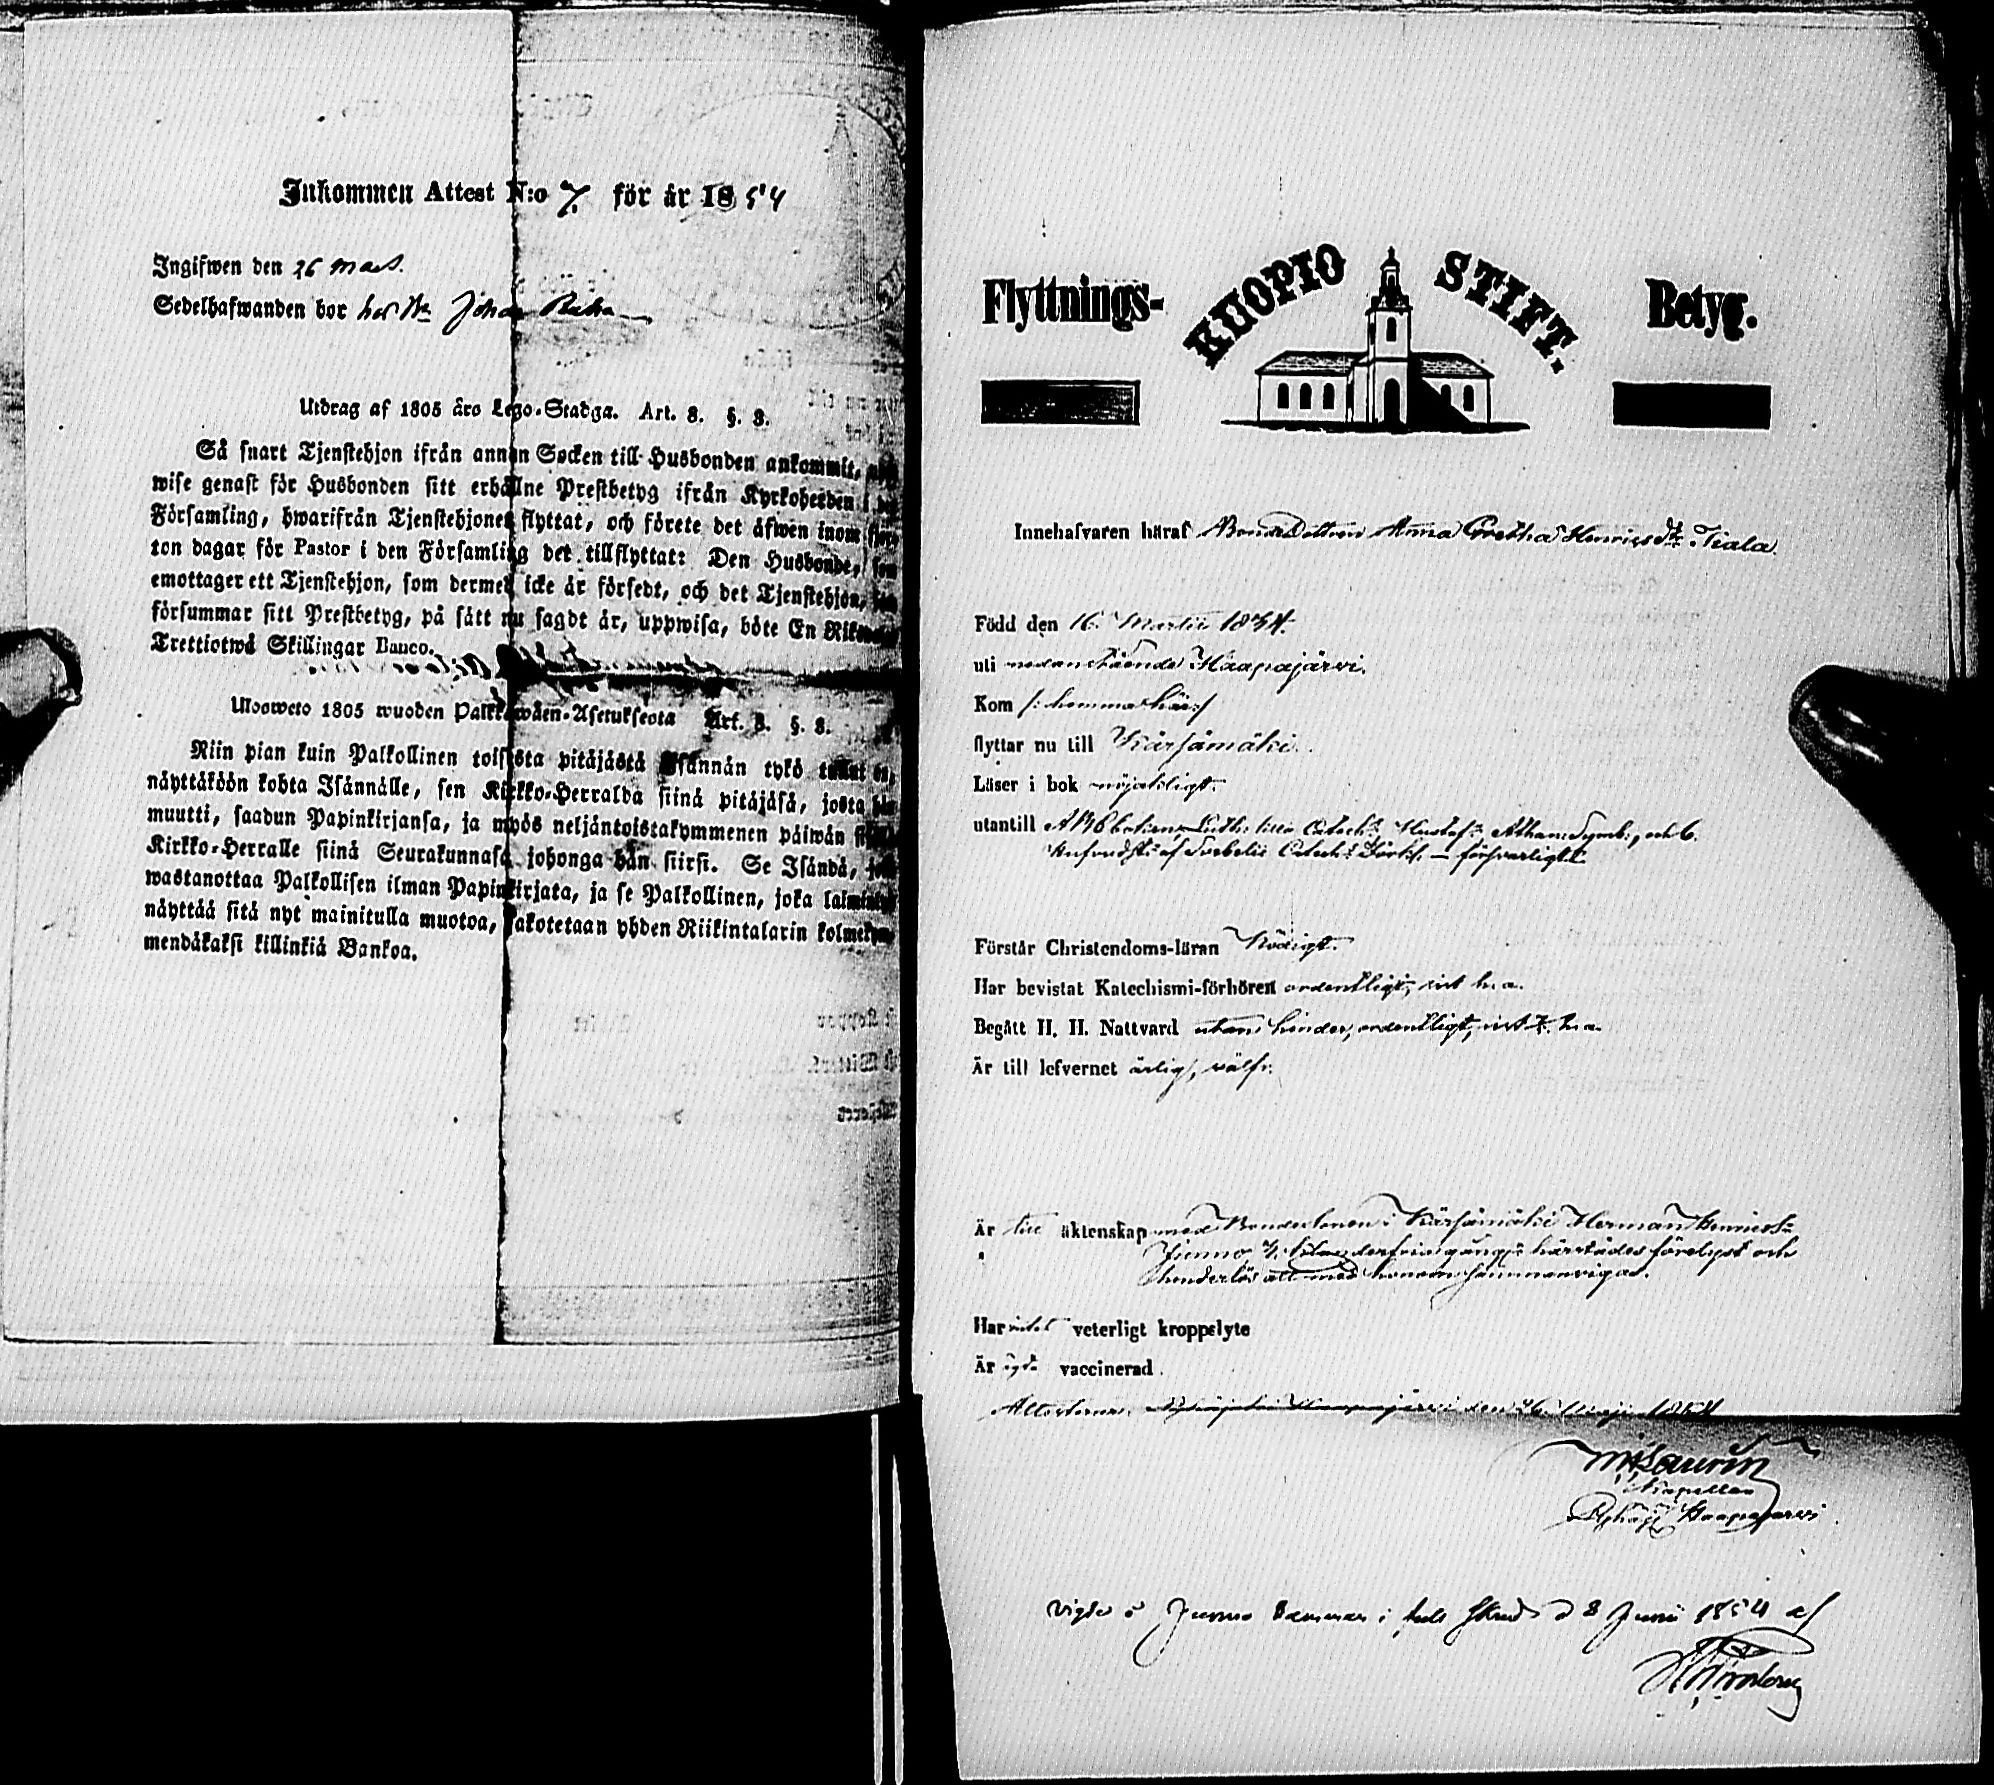 Inkommen Attest N:o 7. för år 1854
Ingifwen den 26 Mars.
Sedelhafwanden bor hos Johan
Utdrag af 1805 års Lego-Stadga. Art. 8. §. 8.
Så snart Tjenstehjon ifrån annan Socken till Husbonden ankommit,
wise genast för Husbonden sitt erhållne Prestbetyg ifrån Kyrkoherden i
Församling, hwarifrån Tjenstehjonet flyttat, och förete det äfwen inom
ton dagar för Pastor i den Församling det tillflyttat: Den Husbonde, som
emottager ett Tjenstehjon, som dermed icke är försedt, och det Tjenstehjon, som
försummar sitt Prestbetyg, på sätt nu sagdt är, uppwisa, böte En
Trettiotwå Skillingar Banco.
Ulosweto 1805 wuoden Palkkawäen-Asetuksesta Art. 8. §. 8.
Niin pian kuin Palkollinen toisesta pitäjästä Isännän tykö tullut on,
näyttäköön kohta Isännälle, sen Kirkko-Herralda siinä pitäjäsä, josta hän
muutti, saadun Papinkirjansa, ja myös neljäntoistakymmenen päiwän
Kirkko-Herralle siinä Seurakunnasa johonga hän siirsi. Se Isändä, joka
wastanottaa Palkollisen ilman Papinkirjata, ja se Palkollinen, joka
näyttää sitä nyt mainitulla muotoa, sakotetaan yhden Riikintalarin
mendäkaksi killinkiä Bankoa.
Flyttnings- KUOPIO STIFT. Betyg.
Innehafvaren häraf Bondedottren Anna Gretha Henricsdr Tiala.
Född den 16. Martii 1834.
uti nedanstående Haapajärvi.
Kom /: hemma här :/
flyttar nu till Kärsämäki.
Läser i bok nöjaktligt.
utantill Luth: lilla Catech: Hustafl: Athan: Symb:, och
af Svebelii Catech: försvarligt.
Förstår Christendoms-läran nödigt.
Har bevistat Katechismi-förhören ordentligt, sist h. a.
Begått H. H. Nattvard utan hinder, ordentligt, sist h. a.
Är till lefvernet ärlig, välfr:
Är till äktenskap med Bondesonen i Kärsämäki Herman Henricss:
Junno 3. gångr härstädes förelyst och
hinderlös att med honom sammanvigas.
Har intet veterligt kroppslyte
Är vaccinerad.
Attesterar, Pyhäjoki Haapajärvi den 26 Maji 1854
Kapellan
Haapajärvi
Vigde å Junno hemman i d 8 Junii 1854 af